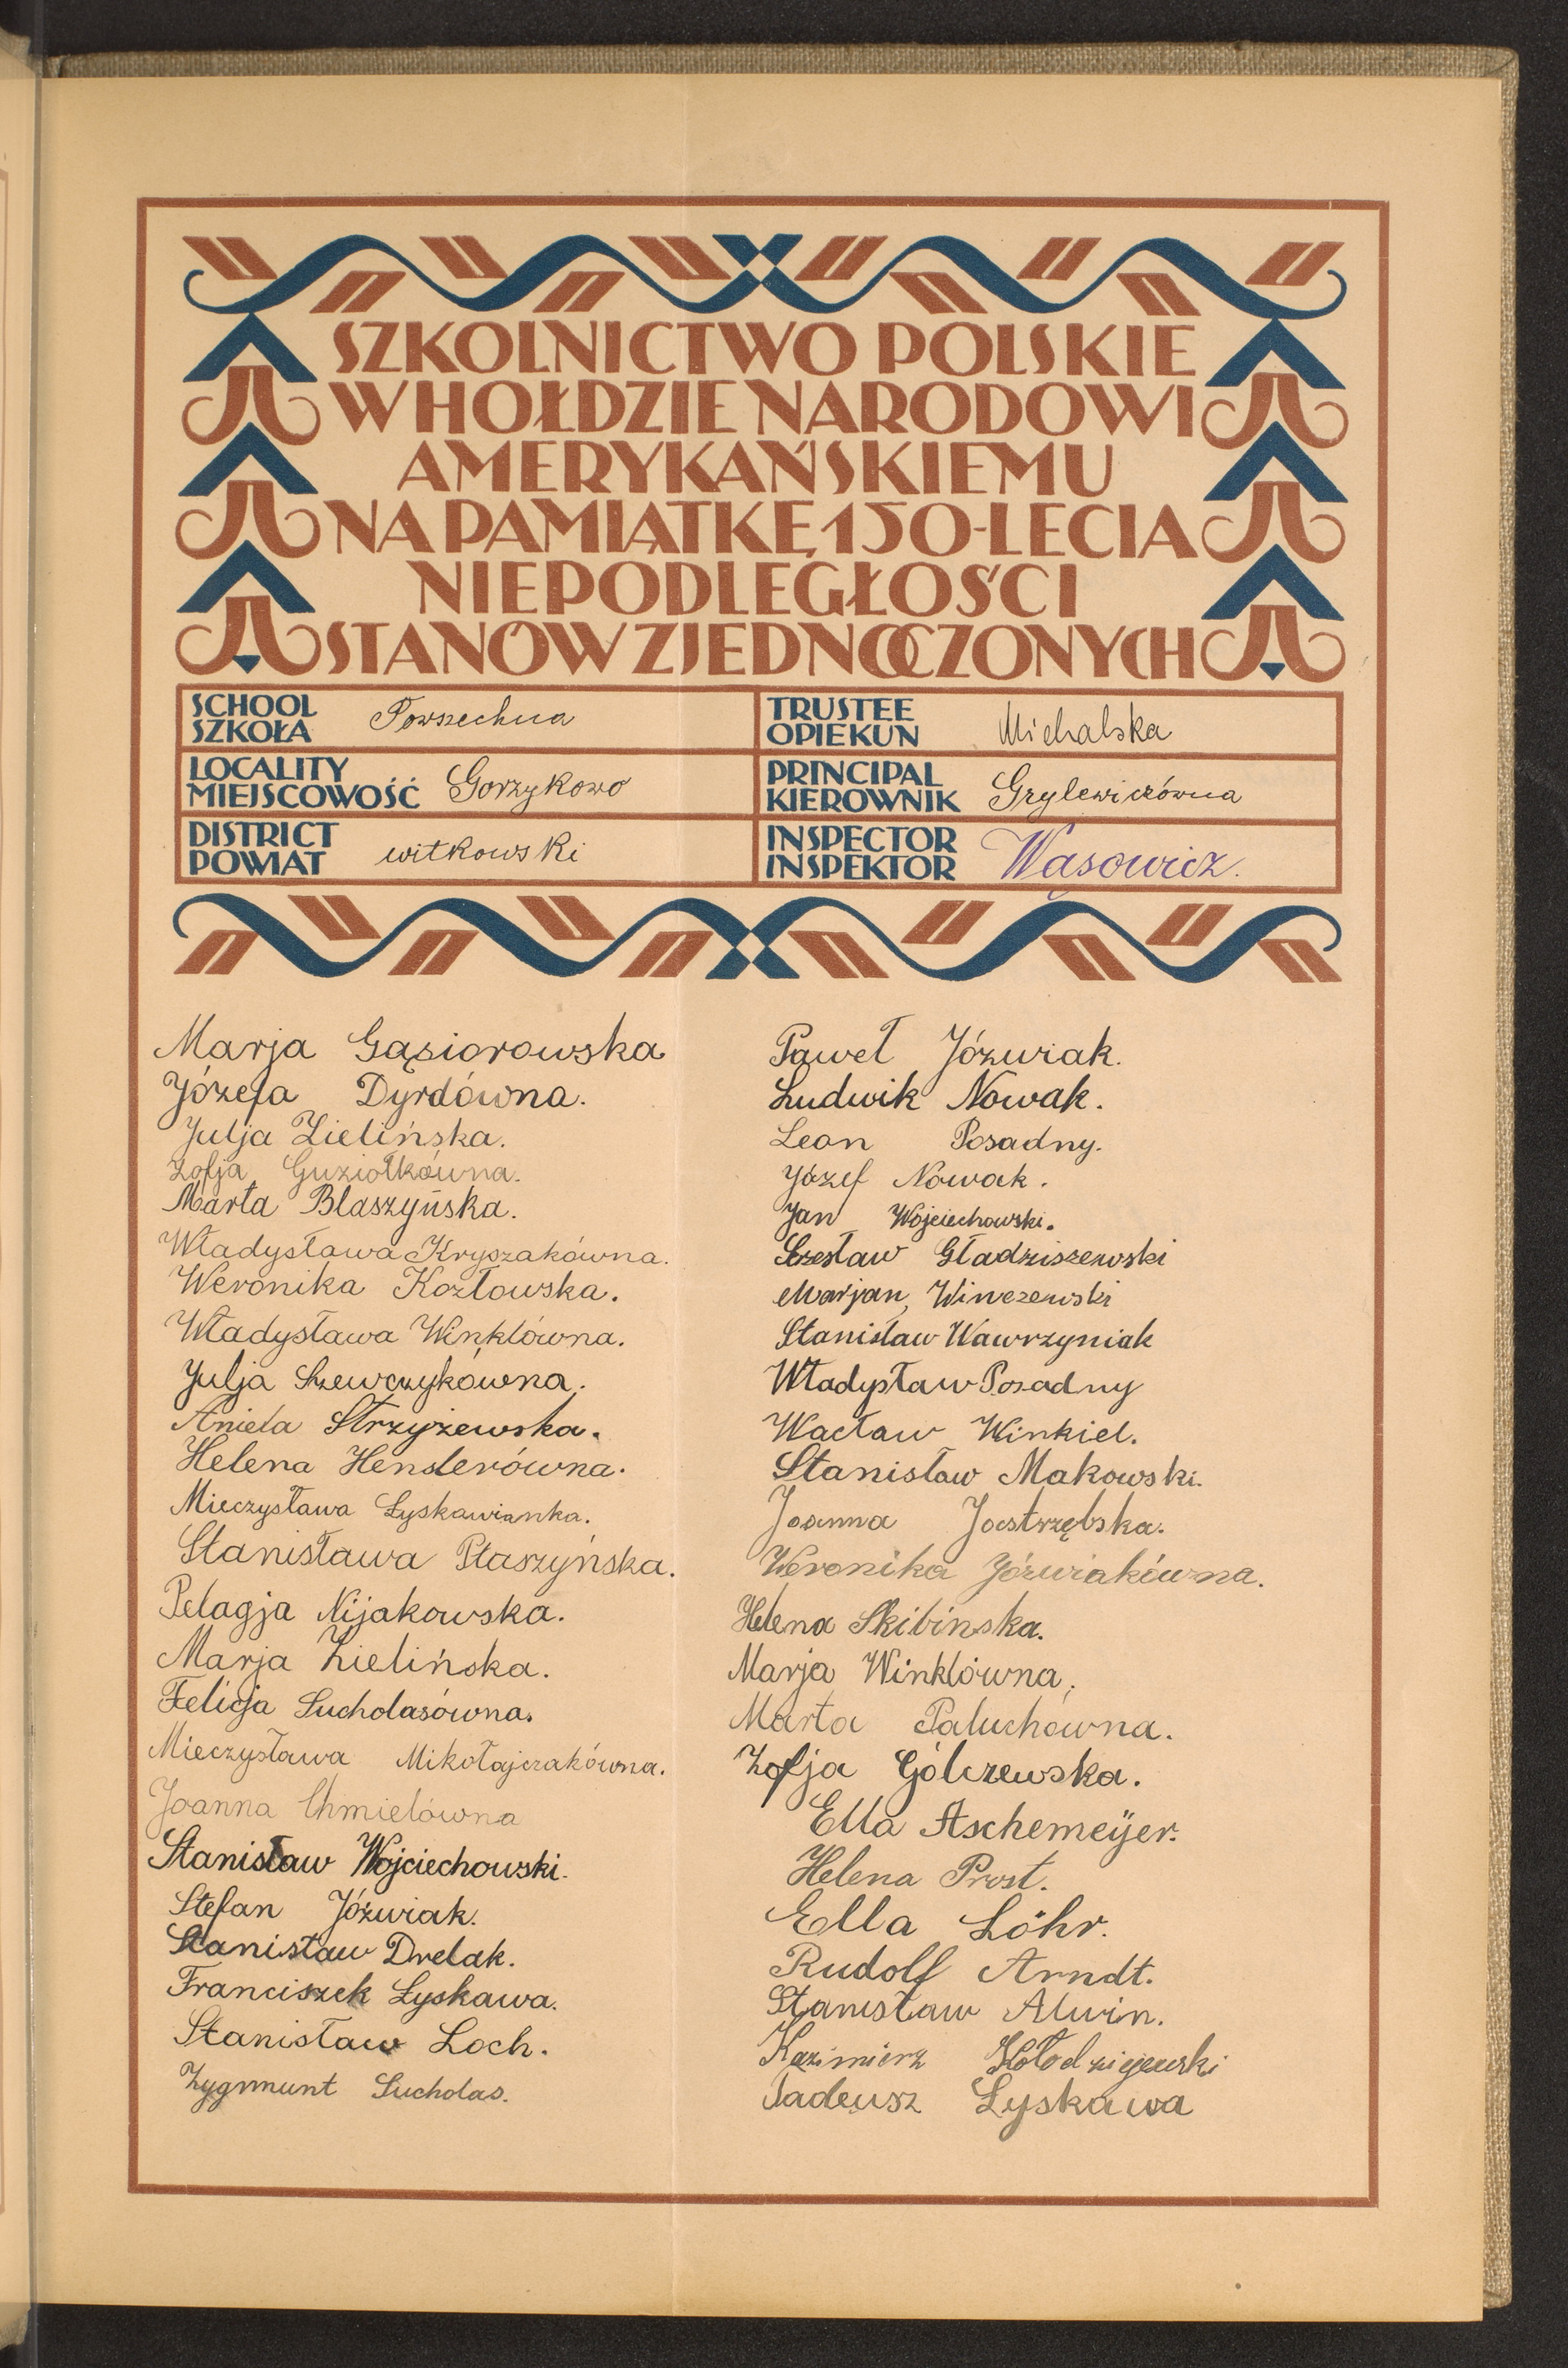 SZKOLNICTWO POLSKIE
W HOŁDZIE NARODOWI
AMERYKAŃSKIEMU
NA PAMIĄTKĘ 150-LECIA
NIEPODLEGŁOŚCI
STANÓW ZJEDNOCZONYCH
SCHOOL
SZKOŁA Powszechna
TRUSTEE
OPIEKUN Michalska
LOCALITY
MIEJSCOWOŚĆ Gorzykowo
PRINCIPAL
KIEROWNIK Grylewiczówna
DISTRICT
POWIAT witkowski
INSPECTOR
INSPEKTOR Wąsowicz.
Marja Gąsiorowska
Józefa Dyrdówna.
Julja Zielińska.
Zofja Guziołkówna.
Marta Błaszyńska.
Władysława Kryszakówna.
Weronika Kozłowska.
Władysława Winklówna.
Julja Szewczykówna.
Aniela Strzyżewska.
Helena Henslerówna.
Mieczysława Łyskawianka.
Stanisława Ptaszyńska.
Pelagja Nijakowska.
Marja Zielińska.
Felicja Sucholasówna.
Mieczysława Mikołajczakówna.
Joanna Chmielówna
Stanisław Wojciechowski.
Stefan Jóźwiak.
Stanisław Drelak.
Franciszek Łyskawa.
Stanisław Loch.
Zygmunt Sucholas.
Paweł Józwiak.
Ludwik Nowak.
Leon Posadny.
Józef Nowak.
Jan Wojciechowski.
Czesław Gładziszewski
Marjan Winczewski
Stanisław Wawrzyniak
Władysław Posadny
Wacław Winkiel.
Stanisław Makowski.
Joanna Jastrzębska.
Weronika Józwiakówna.
Helena Skibinska.
Marja Winklówna.
Marta Paluchówna.
Zofja Gólczewska.
Ella Aschemeÿer.
Helena Prost.
Ella Löhr.
Rudolf Arndt.
Stanisław Alwin.
Kazimierz Kołodziejewski
Tadeusz Łyskawa